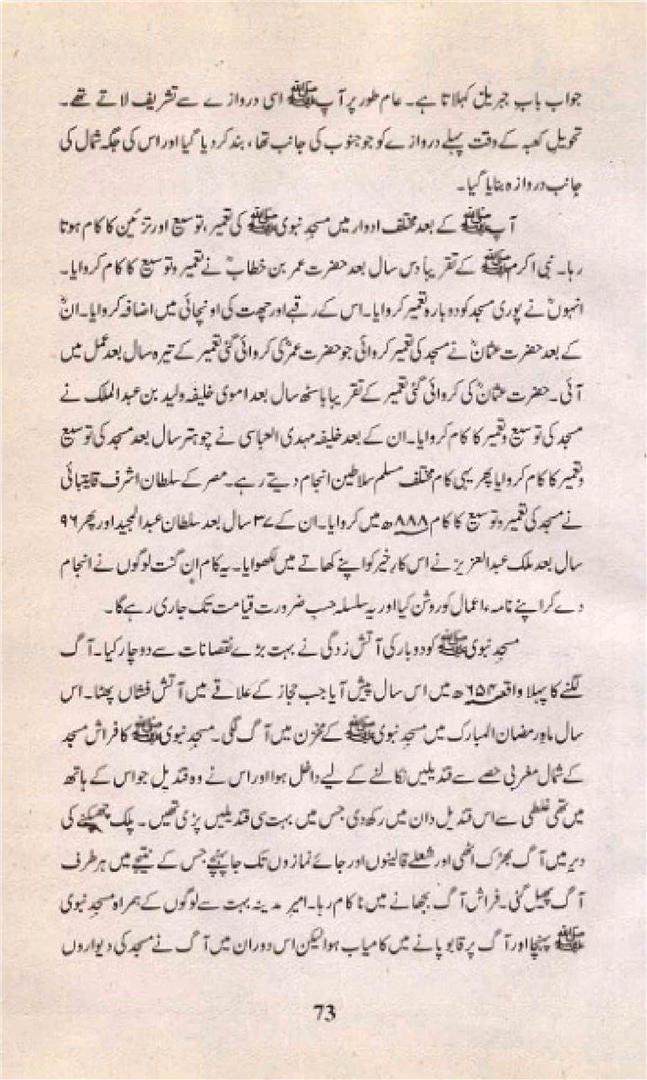 جواب باب جبریلؑ کہلاتا ہے۔ عام طور پر آپ ﷺ اسی دروازے سے تشریف لاتے تھے۔
تحویل کعبہ کے وقت پہلے دروازے کو جو جنوب کی جانب تھا، بند کر دیا گیا اور اس کی جگہ شمال کی
جانب دروازہ بنایا گیا۔
آپ ﷺ کے بعد مختلف ادوار میں مسجد نبوی ﷺ کی تعمیر، توسیع اور تزئین کا کام ہوتا
رہا۔ نبی اکرم ﷺ کے تقریباً دس سال بعد حضرت عمر بن خطابؓ نے تعمیر و توسیع کا کام کروایا۔
انہوںؓ نے پوری مسجد کو دوبارہ تعمیر کروایا۔ اس کے رقبے اور چھت کی اونچائی میں اضافہ کروایا۔ انؓ
کے بعد حضرت عثمانؓ نے مسجد کی تعمیر کروائی جو حضرت عمرؓ کی کروائی گئی تعمیر کے تیرہ سال بعد عمل میں
آئی۔ حضرت عثمانؓ کی کروائی گئی تعمیر کے تقریباً باسٹھ سال بعد اموی خلیفہ ولید بن عبدالملک نے
مسجد کی توسیع و تعمیر کا کام کروایا۔ ان کے بعد خلیفہ مہدی العباسی نے چوہتر سال بعد مسجد کی توسیع
و تعمیر کا کام کروایا پھر یہی کام مختلف مسلم سلاطین انجام دیتے رہے۔ مصر کے سلطان اشرف قایتبائی
نے مسجد کی تعمیر و توسیع کا کام ۸۸۸ھ میں کروایا۔ ان کے ۳۷ سال بعد سلطان عبدالمجید اور پھر ۹۶
سال بعد ملک عبدالعزیز نے اس کارِ خیر کو اپنے کھاتے میں لکھوایا۔ یہ کام ان گنت لوگوں نے انجام
دے کر اپنے نامۂ اعمال کو روشن کیا اور یہ سلسلہ حسب ضرورت قیامت تک جاری رہے گا۔
مسجد نبوی ﷺ کو دوبار کی آتش زدگی نے بہت بڑے نقصانات سے دوچار کیا۔ آگ
لگنے کا پہلا واقعہ ۶۵۴ھ میں اس سال پیش آیا جب حجاز کے علاقے میں آتش فشاں پھٹا۔ اس
سال ماہِ رمضان المبارک میں مسجد نبوی ﷺ کے مخزن میں آگ لگی۔ مسجد نبوی ﷺ کا فراش مسجد
کے شمال مغربی حصے سے قندیلیں نکالنے کے لیے داخل ہوا اور اس نے وہ قندیل جو اس کے ہاتھ
میں تھی غلطی سے اس قندیل دان میں رکھ دی جس میں بہت سی قندیلیں پڑی تھیں۔ پلک جھپکنے کی
دیر میں آگ بھڑک اٹھی اور شعلے قالینوں اور جائے نمازوں تک جا پہنچے جس کے نتیجے میں ہر طرف
آگ پھیل گئی۔ فراش آگ بجھانے میں ناکام رہا۔ امیر مدینہ بہت سے لوگوں کے ہمراہ مسجد نبوی
ﷺ پہنچا اور آگ پر قابو پانے میں کامیاب ہوا لیکن اس دوران میں آگ نے مسجد کی دیواروں
73